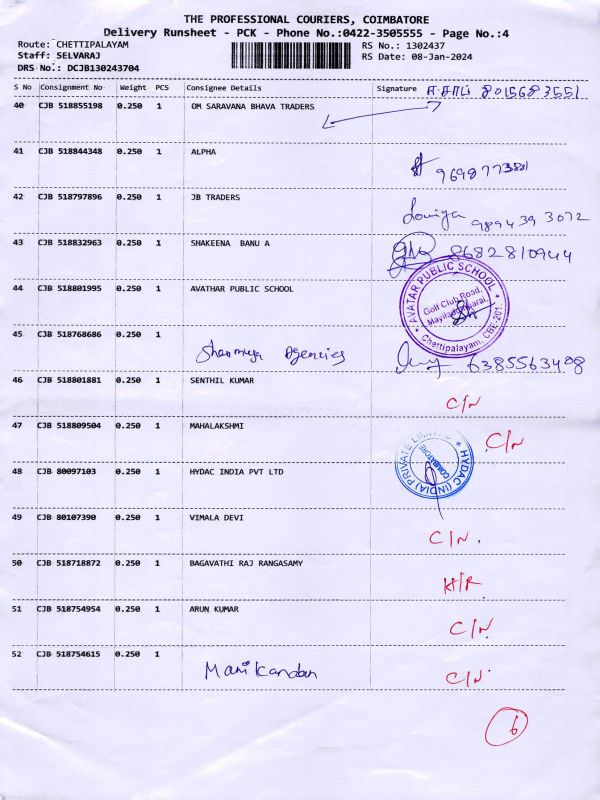 THE PROFESSIONAL COURIERS, COIMBATORE
Delivery Runsheet - PCK - Phone No.:0422-3505555 - Page No.:4
Route: CHETTIPALAYAM RS No.: 1302437
Staff: SELVARAJ RS Date: 08-Jan-2024
DRS No.: DCJB130243704
S No Consignment No Weight PCS Consignee Details Signature 8015683551
40 CJB 518855198 0.250 1 OM SARAVANA BHAVA TRADERS
41 CJB 518844348 0.250 1 ALPHA
42 CJB 518797896 0.250 1 JB TRADERS 9894393072
43 CJB 518832963 0.250 1 SHAKEENA BANU A 8682810944
44 CJB 518801995 0.250 1 AVATHAR PUBLIC SCHOOL
AVATAR PUBLIC SCHOOL
Golf Club Road,
Chettipalayam, CBE-201.
45 CJB 518768686 0.250 1 Agencies 6385563408
46 CJB 518801881 0.250 1 SENTHIL KUMAR C/N
47 CJB 518809504 0.250 1 MAHALAKSHMI C/N
48 CJB 80097103 0.250 1 HYDAC INDIA PVT LTD
HYDAC (INDIA) PRIVATE LIMITED
COIMBATORE
49 CJB 80107390 0.250 1 VIMALA DEVI C/N.
50 CJB 518718872 0.250 1 BAGAVATHI RAJ RANGASAMY
51 CJB 518754954 0.250 1 ARUN KUMAR C/N
52 CJB 518754615 0.250 1 Manikandan C/N
6